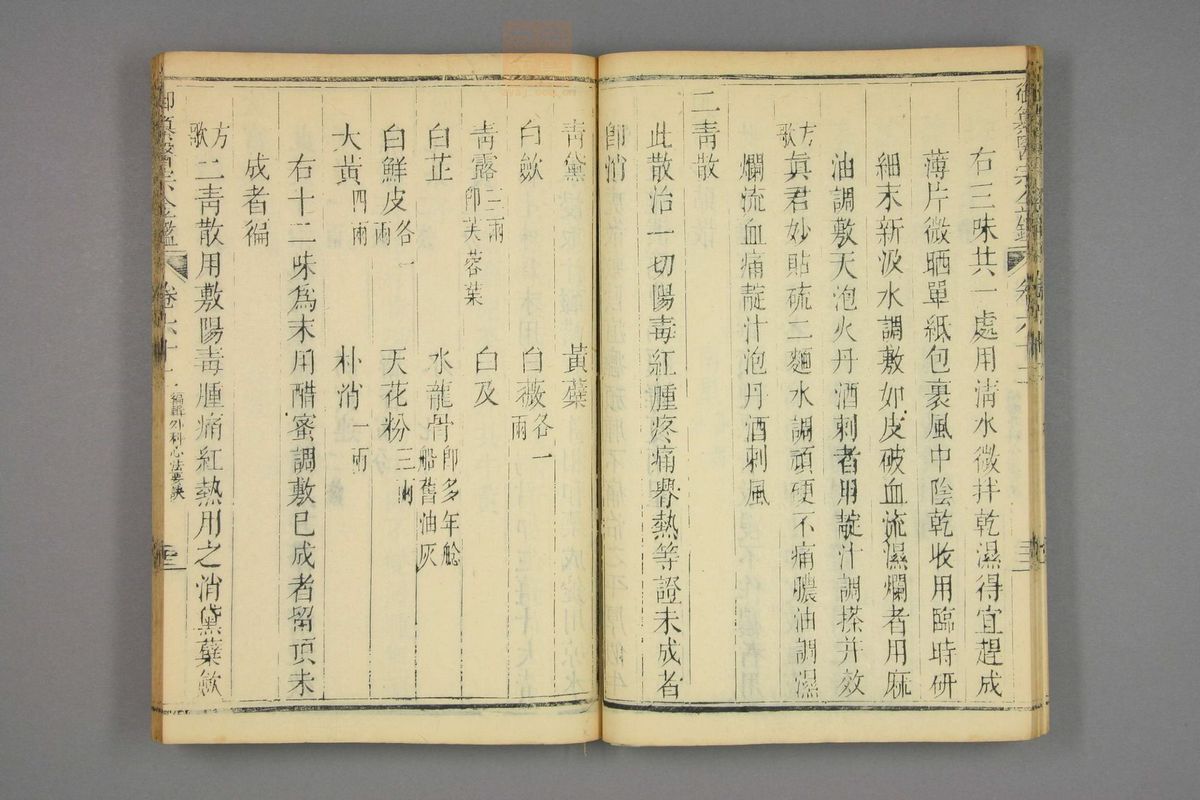 右三味共一處用淸水微拌乾濕得宜趕成
薄片微晒單紙包裹風中陰乾收用臨時研
細末新汲水調敷如皮破血流濕爛者用麻
油調敷天泡火丹酒刺者用靛汁調搽并效
方歌
眞君妙貼硫二麵水調頑硬不痛膿油調濕
爛流血痛靛汁泡丹酒刺風
二靑散
此散治一切陽毒紅腫疼痛臖熱等證未成者
卽消
靑黛 黃蘗
白蘞 白薇各一兩
靑露三兩卽芙蓉葉 白及
白芷 水龍骨卽多年艌船舊油灰
白鮮皮各一兩 天花粉三兩
大黃四兩 朴消一兩
右十二味爲末用醋蜜調敷已成者留頂未
成者徧
方歌
二靑散用敷陽毒腫痛紅熱用之消黛蘗蘞
御纂醫宗金鑑 卷六十二 編輯外科心法要訣